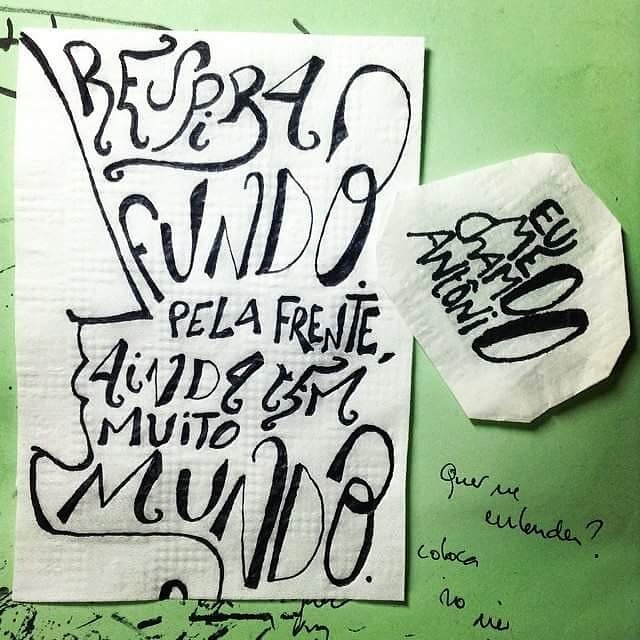 RESPIRA
FUNDO.
PELA FRENTE,
AINDA TEM
MUITO
MUNDO.
EU
ME
CHAMO
ANTÔNIO
Quer me
entender?
coloca